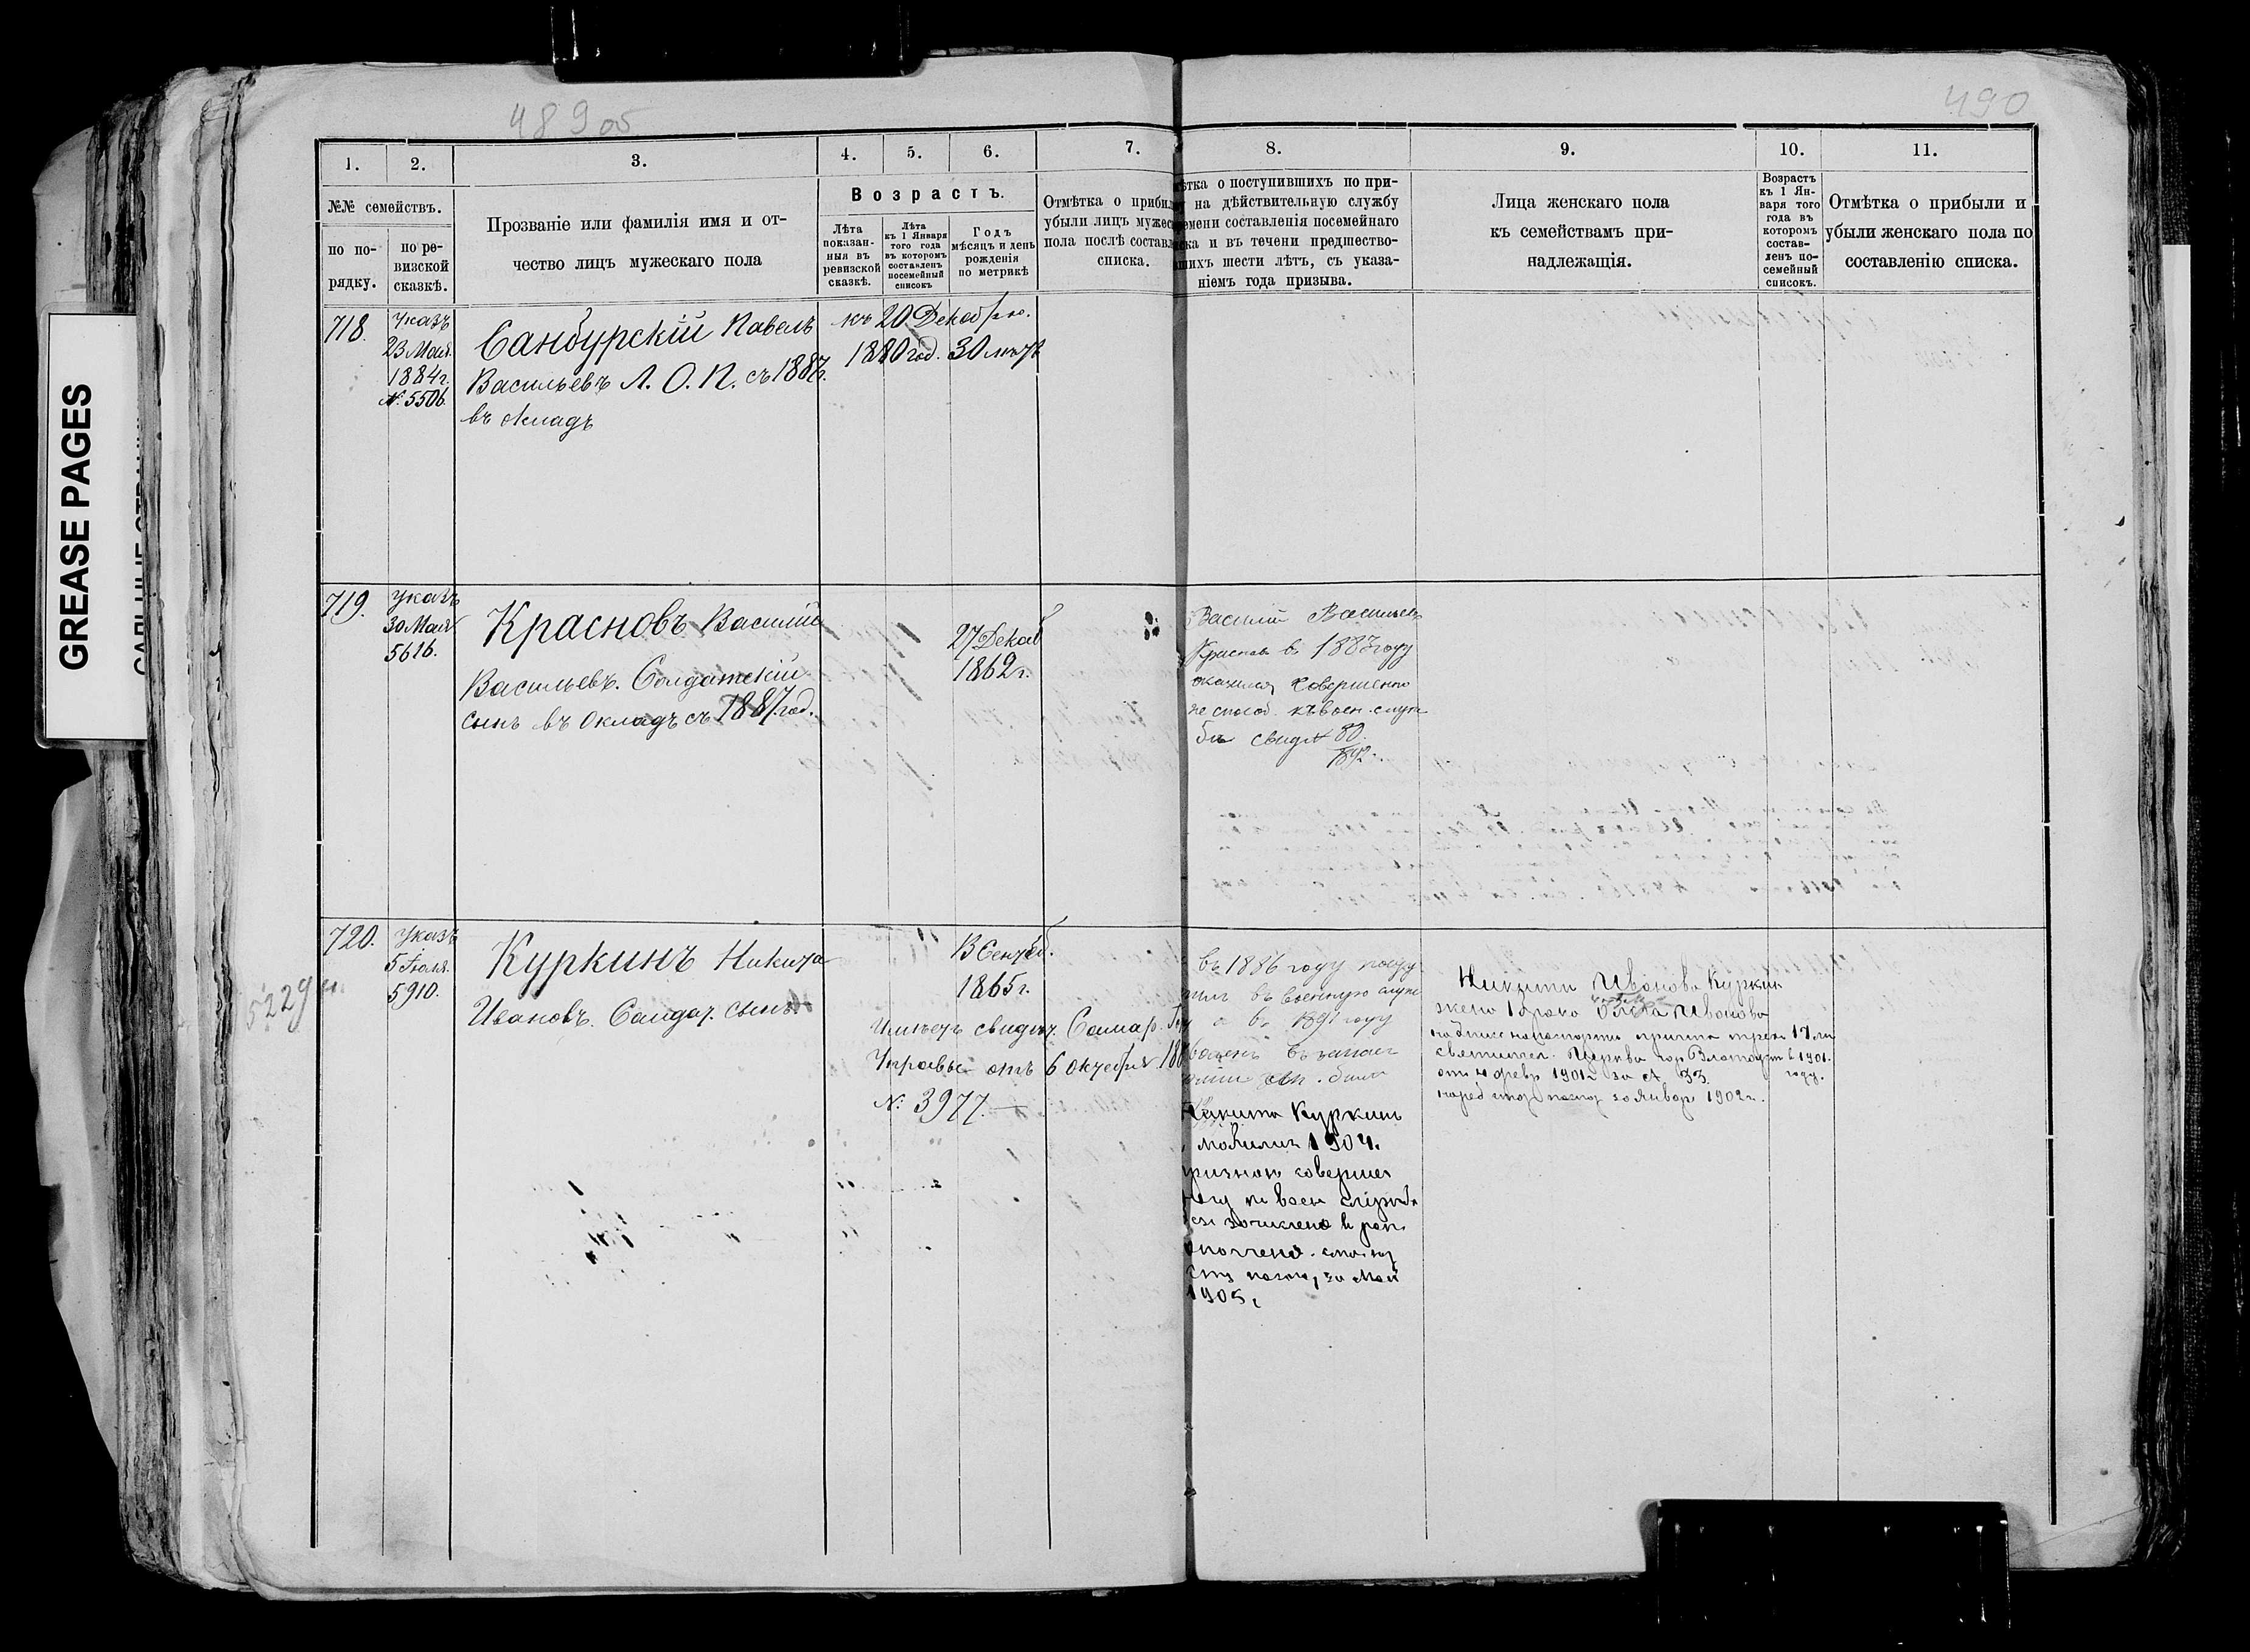 489 об
490
1. 2. 3. 4. 5. 6. 7. 8. 9. 10. 11.
№№ семействъ.
по по-
рядку.
по ре-
визской
сказкѣ.
Прозваніе или фамилія имя и от-
чество лицъ мужескаго пола
Возрастъ.
Лѣта
показан-
ныя въ
ревизской
сказкѣ.
Лѣта
къ 1 Января
того года
въ которомъ
составленъ
посемейный
списокъ
Годъ
мѣсяцъ и день
рожденія
по метрикѣ
Отмѣтка о прибыл
убыли лицъ мужес
пола послѣ составл
списка.
ѣтка о поступившихъ по при-
на дѣйствительную службу
емени составленія посемейнаго
ска и въ течени предшество-
шихъ шести лѣтъ, съ указа-
ніемъ года призыва.
Лица женскаго пола
къ семействамъ при-
надлежащія.
Возрастъ
къ 1 Ян-
варя того
года въ
которомъ
состав-
ленъ по-
семейный
списокъ.
Отмѣтка о прибыли и
убыли женскаго пола по
составленію списка.
718.
Указъ
23 Мая
1884 г.
№ 5506.
Санбурскій Павелъ
Васильевъ Л. О. П. съ 1887 г.
въ окладѣ
къ 20 Декабрю.
1880 год. 30 лѣтъ
719.
Указъ
30 Мая
5616.
Красновъ Василій
Васильевъ. Солдатскій
сынъ въ окладѣ съ 1887 год.
27 Декаб
1862 г.
Василій Васильевъ
Краснов в 1883 году
оказался совершенно
не способ. къ воен. служ
бѣ свид № 80.
1892 г.
720.
Указъ
5 Іюля.
5910.
5229
Куркинъ Никита
Ивановъ. Солдат. сынъ
В Сентяб.
1865 г.
Имѣетъ свидѣт. Самар. Гор
Управы отъ 6 октября 188
№: 3977.
въ 1886 году посту
пил въ военную служ
а въ 1891 году
воленъ въ запас
Никита Куркин
мобилиз 1904.
признан совершен
воен службѣ
зачислено в
ополчена.
за Май
1905 г
Никиты Иванова Куркин
жена 1 брака Ивановa
церкви гор Златоуст
от 4 февр 1901 г за № 33.
Январ 1902 г.
17 лѣ
в 1901.
году.
GREASE PAGES